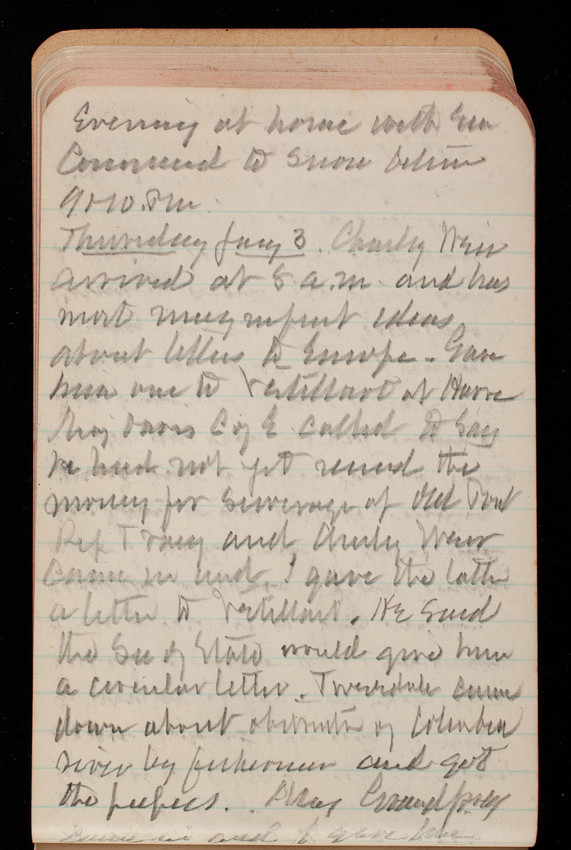 Evening at home with Eva
Commenced to snow before
9-10 P.M.
Thursday Jany 3. Charley Weir
arrived at 8 a.m. and has
most magnificent ideas
about letters to Europe. Gave
him one to Vetillart at Havre
Maj Davis C of E called to say
he had not yet received the
money for sewerage of Old Point
Rep and Charley Weir
came in and I gave the latter
a letter to Vetillart. He said
the Sec of State would give him
a circular letter. came
down about obstruction of Columbia
river by fishermen and got
the papers. Maj
came in and I gave him